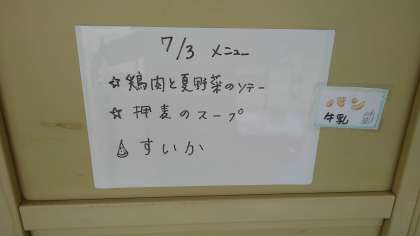 7/3 メニュー
☆鶏肉と夏野菜のソテー
☆押麦のスープ
すいか
パン
牛乳